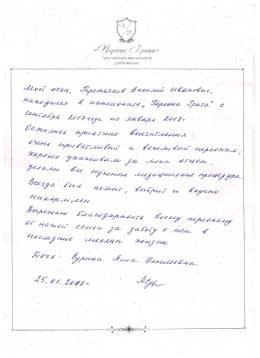 «Персона Грата»
Мой отец, Третьяков Василий Иванович,
находился в пансионате „Персона Грата" с
сентября 2017 года по январь 2018г.
Остались приятные впечатления:
очень приветливый и вежливый персонал,
хорошо ухаживали за моим отцом,
делали все нужные медицинские процедуры.
Всегда был помыт, выбрит и вкусно
накормлен.
Выражаю благодарность всему персоналу
от нашей семьи за заботу о нем в
последние месяцы жизни.
Дочь - Алла Васильевна
25.01.2018г.